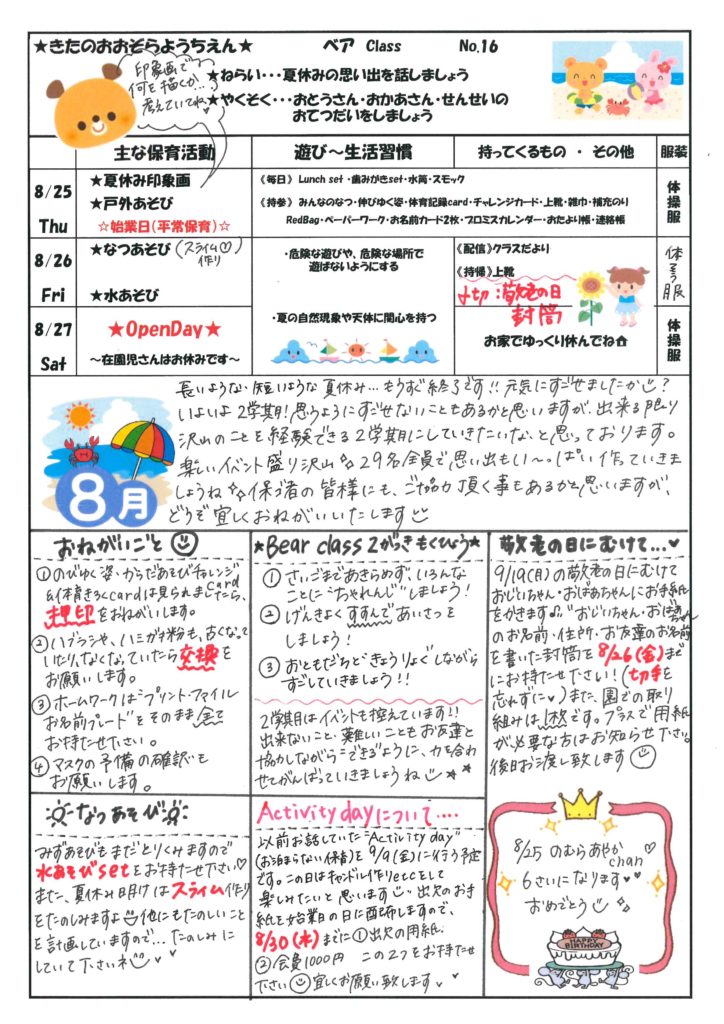 ★きたのおおぞらようちえん★ ベア Class No.16
印象画で
何を描くか
考えていてね♥
★ねらい・・・夏休みの思い出を話しましょう
★やくそく・・・おとうさん・おかあさん・せんせいの
おてつだいをしましょう
主な保育活動 遊び～生活習慣 持ってくるもの ・ その他 服装
8/25
Thu
★夏休み印象画
★戸外あそび
☆始業日(平常保育)☆
《毎日》 Lunch set ・歯みがきset・水筒・スモック
《持参》 みんなのなつ・伸びゆく姿・体育記録card・チャレンジカード・上靴・雑巾・補充のり
RedBag・ペーパーワーク・お名前カード2枚・プロミスカレンダー・おたより帳・連絡帳
体操服
8/26
Fri
★なつあそび(スライム♡作り)
★水あそび
・危険な遊びや、危険な場所で
遊ばないようにする
《配信》クラスだより
《持帰》上靴
〆切:敬老の日
封筒
体そう服
8/27
Sat
★OpenDay★
～在園児さんはお休みです～
・夏の自然現象や天体に関心を持つ
お家でゆっくり休んでね
体操服
8月
長いような・短いような夏休み…もうすぐ終了です!!元気にすごせましたか!?
いよいよ2学期!思うようにすごせないこともあるかと思いますが、出来る限り
沢山のことを経験できる2学期にしていきたいな、と思っております。
楽しいイベント盛り沢山☆29名全員で思い出もい～っぱい作っていきま
しょうね☆保ゴ者の皆様にも、ご協力頂く事もあるかと思いますが、
どうぞ宜しくおねがいいたします
おねがいごと
①のびゆく姿・からだあそびチャレンジcard
&体育きろくcardは見られましたら、
押印をおねがいします。
②ハブラシや、ハミガキ粉も、古くなって
いたり、なくなっていたら交換を
お願いします。
③ホームワークは"プリント・ファイル
お名前プレート"をそのまま全て
お持たせ下さい。
④マスクの予備の確認も
お願いします。
★Bear class 2がっきもくひょう★
① さいごまであきらめず、いろんな
ことに"ちゃれんじ"しましょう!
② げんきよくすすんであいさつを
しましょう!
③ おともだちと"きょうりょく"しながら
すごしていきましょう!!
2学期はイベントも控えています!!
出来ないこと・難しいこともお友達と
協力しながら"できる"ように、力を合わ
せてがんばっていきましょうね★★
敬老の日にむけて…♥
9/19(月)の敬老の日にむけて
おじいちゃん・おばあちゃんにお手紙
をかきます♪"おじいちゃん・おばあちゃん
のお名前・住所・お友達のお名前
を書いた封筒を8/26(金)まで
にお持たせ下さい!(切手を
忘れずに♥)また、園での取り
組みは1枚です。プラスで用紙
が必要な方はお知らせ下さい。
後日お渡し致します
なつあそび
みずあそびもまだとりくみますので
水あそびsetをお持たせ下さい♡
また、夏休み明けはスライム作り
をたのしみますよ 他にもたのしいこと
を計画していますので…たのしみに
していて下さいネ
Activity dayについて….
以前お話していた"Activity day"
(お泊まらない保育)を9/9(金)に行う予定
です。この日はキャンドル作りeccをして
楽しみたいと思います 出欠のお手
紙を始業の日に配布しますので、
8/30(木)までに①出欠の用紙
②会費1000円 この2つをお持たせ
下さい 宜しくお願い致します♥
8/25 のむらあやかchan♡
6さいになります♥♥
おめでとう
HAPPY
BIRTHDAY